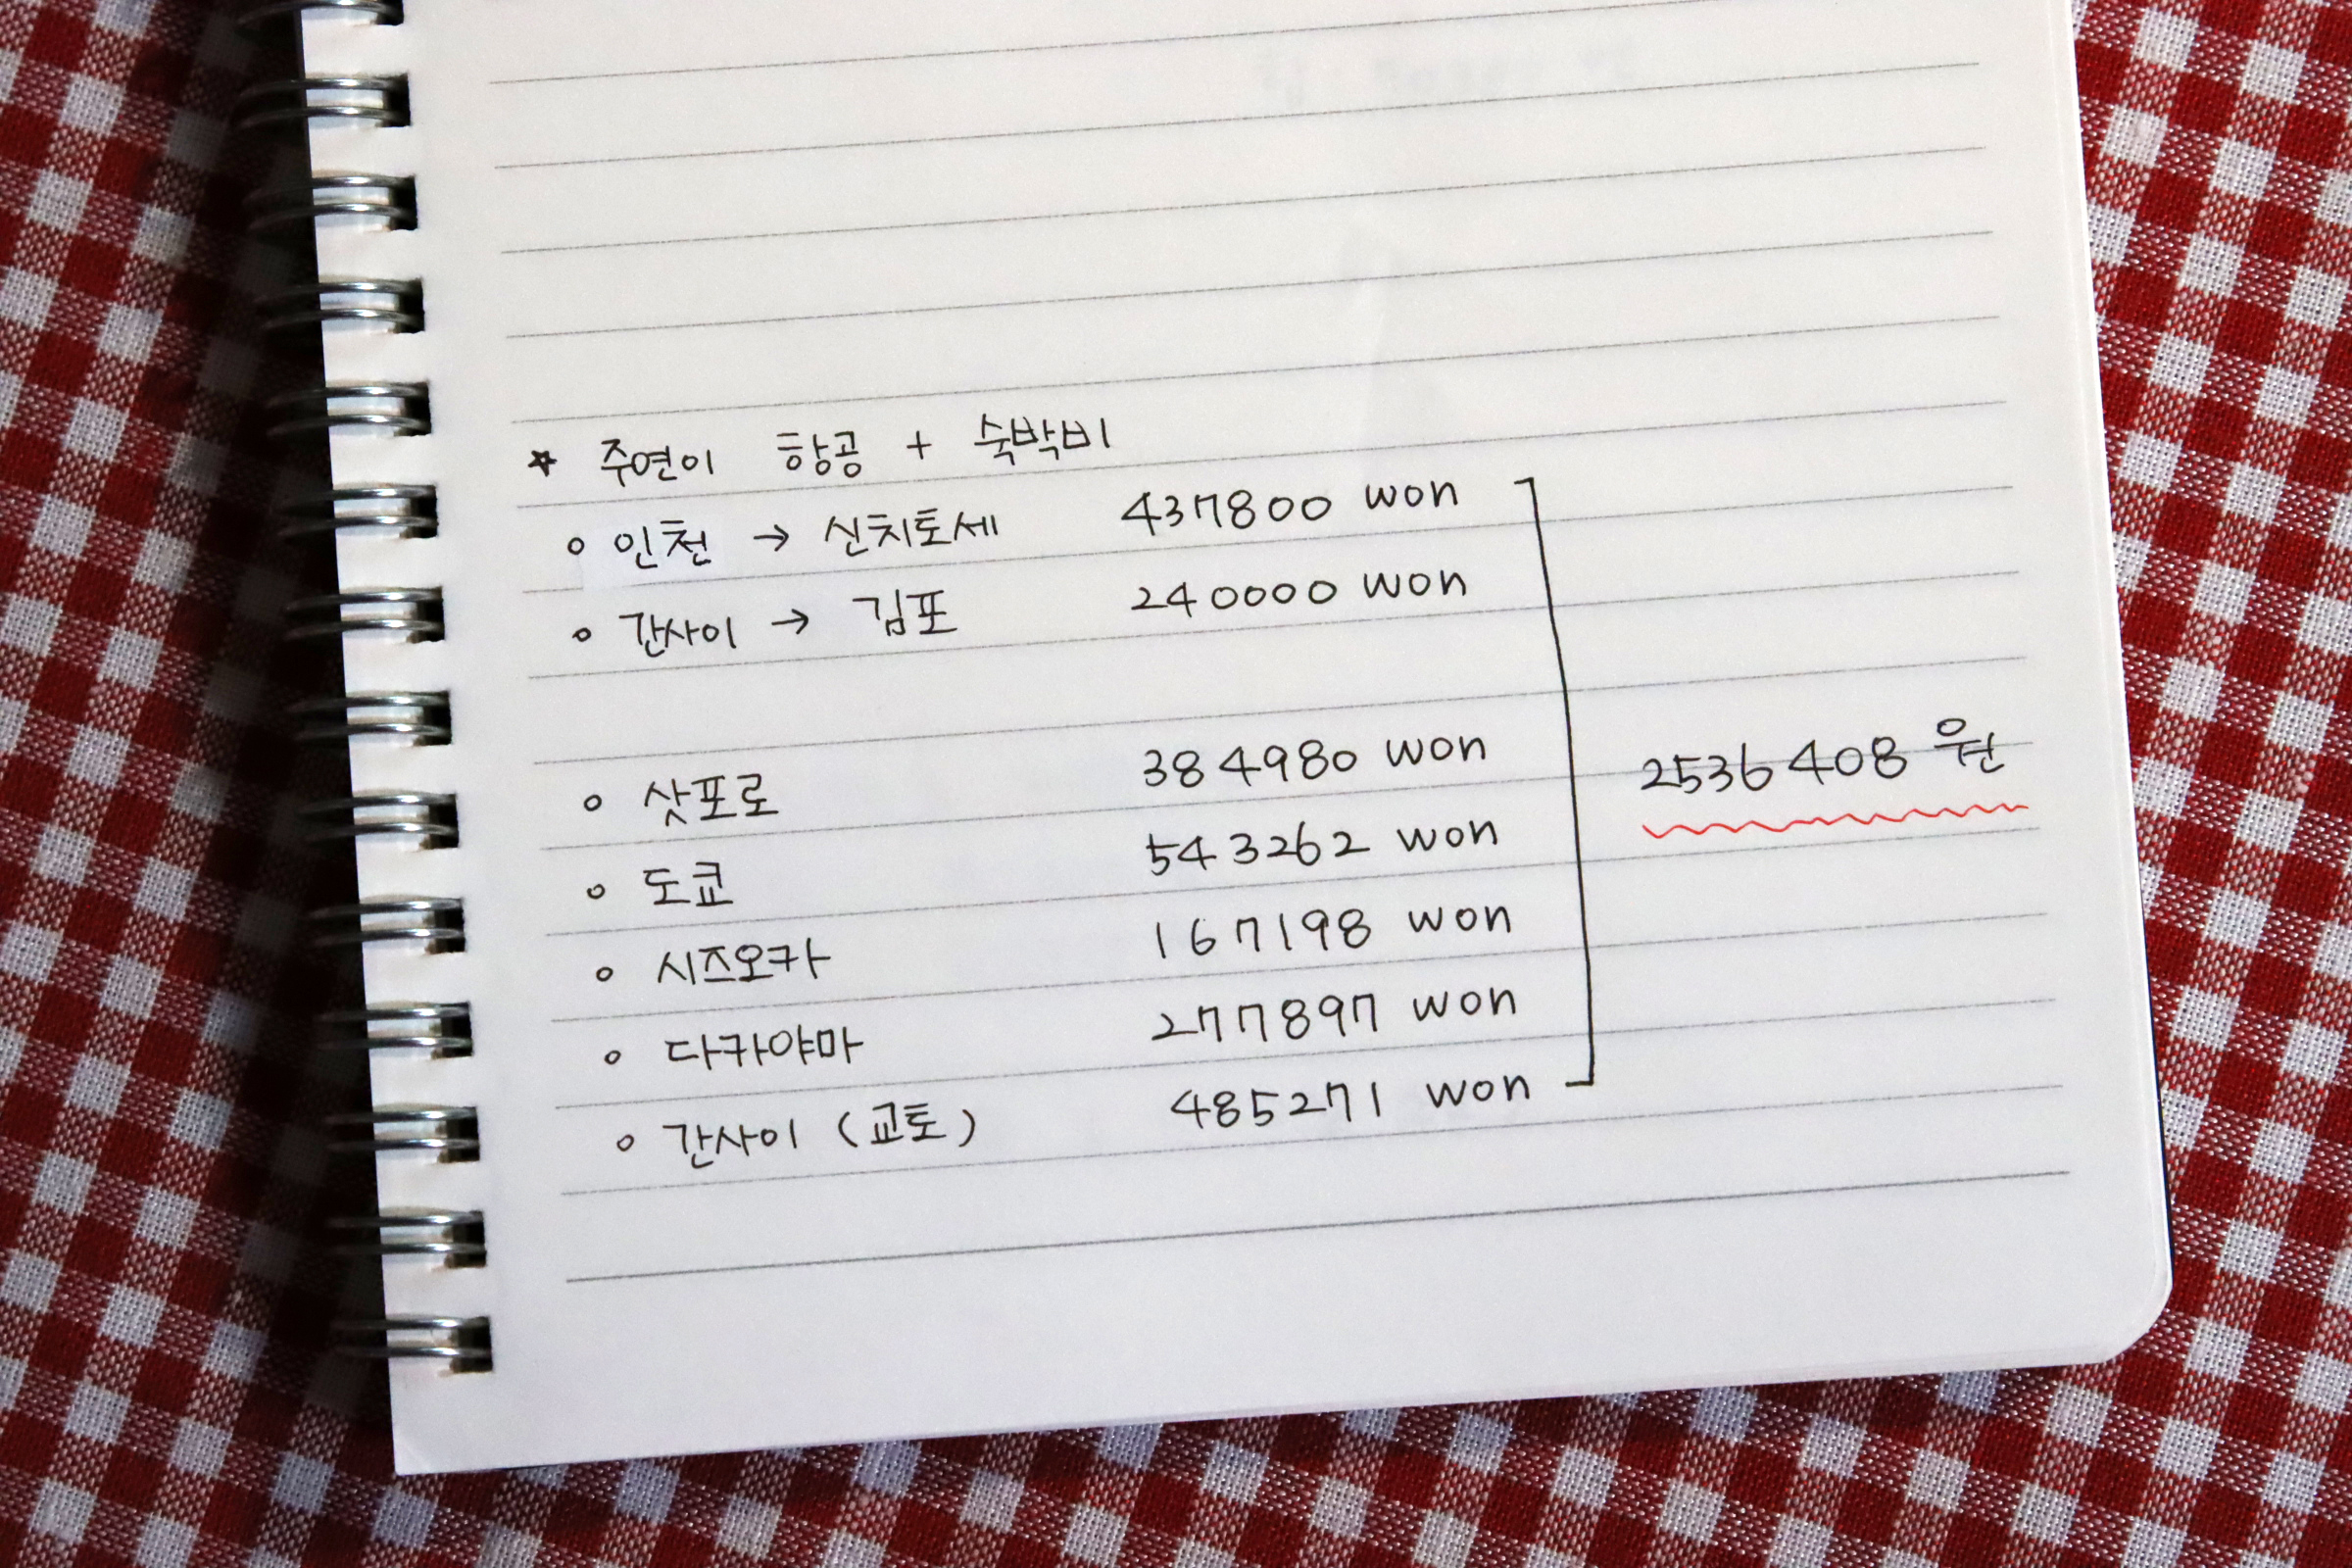 ★ 주연이 항공 + 숙박비
◦ 인천 → 신치토세 437800 won
◦ 간사이 → 김포 240000 won
◦ 삿포로 384980 won
2536408 원
◦ 도쿄 543262 won
◦ 시즈오카 167198 won
◦ 다카야마 277897 won
◦ 간사이 (교토) 485271 won